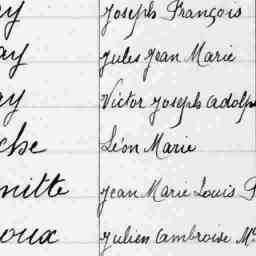 y Joseph François
ay Jules Jean Marie
ay Victor Joseph Adolph
che Léon Marie
nitte Jean Marie Louis P
oux Julien Ambroise M